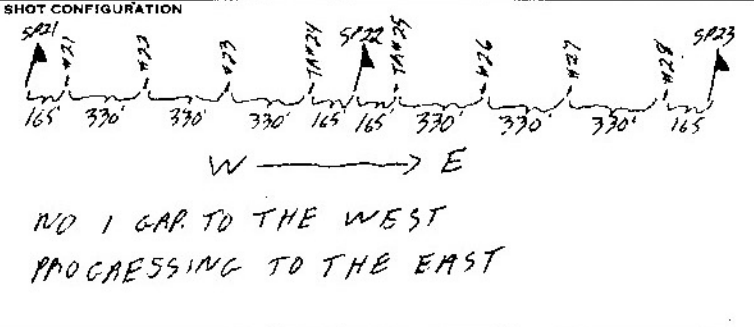 SHOT CONFIGURATION
SP21 #21 #22 #23 TR#24 SP22 TR#25 #26 #27 #28 SP23
165' 330' 330' 330' 165' 165' 330' 330' 330' 165
W E
NO 1 GAP. TO THE WEST
PROGRESSING TO THE EAST